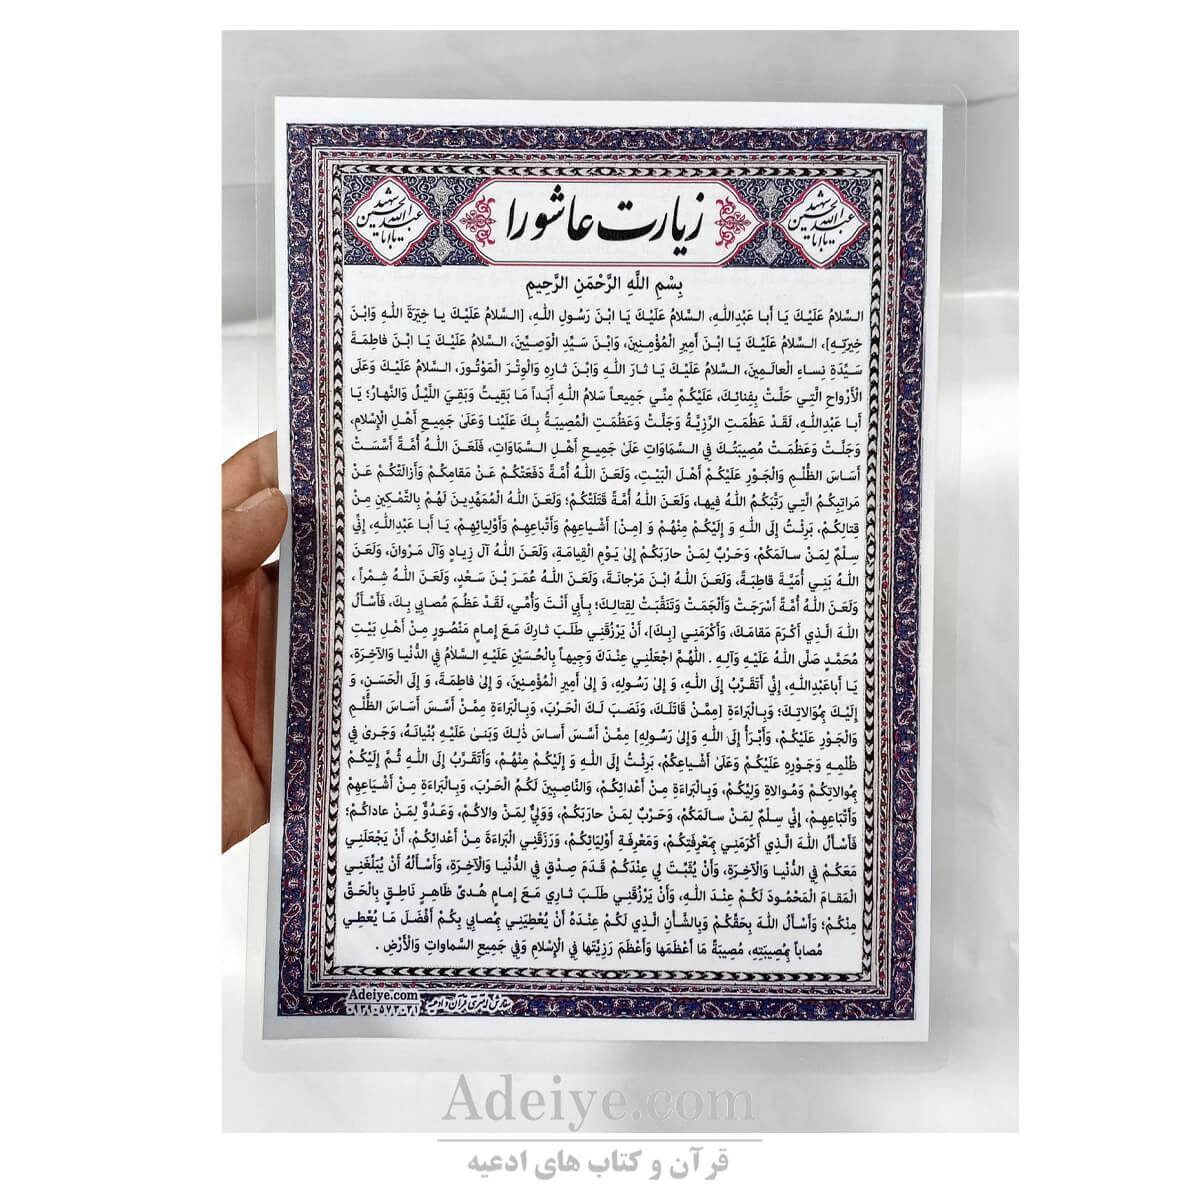 زیارت عاشورا
یا ابا عبدالله الحسین شهید
یا ابا عبدالله الحسین شهید
بِسْمِ اللَّهِ الرَّحْمَنِ الرَّحِيمِ
السَّلامُ عَلَيْكَ يَا أَبا عَبْدِاللّٰهِ، السَّلامُ عَلَيْكَ يَا ابْنَ رَسُولِ اللّٰهِ، [السَّلامُ عَلَيْكَ يا خِيَرَةَ اللّٰهِ وَابْنَ
خِيَرَتِهِ]، السَّلامُ عَلَيْكَ يَا ابْنَ أَمِيرِ الْمُؤْمِنِينَ، وَابْنَ سَيِّدِ الْوَصِيِّينَ، السَّلامُ عَلَيْكَ يَا ابْنَ فاطِمَةَ
سَيِّدَةِ نِساءِ الْعالَمِينَ، السَّلامُ عَلَيْكَ يَا ثارَ اللّٰهِ وَابْنَ ثارِهِ وَالْوِتْرَ الْمَوْتُورَ، السَّلامُ عَلَيْكَ وَعَلَى
الْأَرْواحِ الَّتِي حَلَّتْ بِفِنائِكَ، عَلَيْكُمْ مِنِّي جَمِيعاً سَلامُ اللّٰهِ أَبَداً مَا بَقِيتُ وَبَقِيَ اللَّيْلُ وَالنَّهارُ؛ يَا
أَبا عَبْدِاللّٰهِ، لَقَدْ عَظُمَتِ الرَّزِيَّةُ وَجَلَّتْ وَعَظُمَتِ الْمُصِيبَةُ بِكَ عَلَيْنا وَعَلَى جَمِيعِ أَهْلِ الْإِسْلامِ،
وَجَلَّتْ وَعَظُمَتْ مُصِيبَتُكَ فِي السَّمَاوَاتِ عَلَىٰ جَمِيعِ أَهْلِ السَّمَاوَاتِ، فَلَعَنَ اللّٰهُ أُمَّةً أَسَّسَتْ
أَساسَ الظُّلْمِ وَالْجَوْرِ عَلَيْكُمْ أَهْلَ الْبَيْتِ، وَلَعَنَ اللّٰهُ أُمَّةً دَفَعَتْكُمْ عَنْ مَقامِكُمْ وَأَزالَتْكُمْ عَنْ
مَراتِبِكُمُ الَّتِي رَتَّبَكُمُ اللّٰهُ فِيها، وَلَعَنَ اللّٰهُ أُمَّةً قَتَلَتْكُمْ؛ وَلَعَنَ اللّٰهُ الْمُمَهِّدِينَ لَهُمْ بِالتَّمْكِينِ مِنْ
قِتالِكُمْ، بَرِئْتُ إِلَى اللّٰهِ وَ إِلَيْكُمْ مِنْهُمْ وَ [مِنْ] أَشْياعِهِمْ وَأَتْباعِهِمْ وَأَوْلِيائِهِمْ، يَا أَبا عَبْدِاللّٰهِ، إِنِّي
سِلْمٌ لِمَنْ سالَمَكُمْ، وَحَرْبٌ لِمَنْ حارَبَكُمْ إِلىٰ يَوْمِ الْقِيامَةِ، وَلَعَنَ اللّٰهُ آلَ زِيادٍ وَآلَ مَرْوانَ، وَلَعَنَ
اللّٰهُ بَنِي أُمَيَّةَ قاطِبَةً، وَلَعَنَ اللّٰهُ ابْنَ مَرْجانَةَ، وَلَعَنَ اللّٰهُ عُمَرَ بْنَ سَعْدٍ، وَلَعَنَ اللّٰهُ شِمْراً ،
وَلَعَنَ اللّٰهُ أُمَّةً أَسْرَجَتْ وَأَلْجَمَتْ وَتَنَقَّبَتْ لِقِتالِكَ؛ بِأَبِي أَنْتَ وَأُمِّي، لَقَدْ عَظُمَ مُصابِي بِكَ، فَأَسْأَلُ
اللّٰهَ الَّذِي أَكْرَمَ مَقامَكَ، وَأَكْرَمَنِي [بِكَ]، أَنْ يَرْزُقَنِي طَلَبَ ثارِكَ مَعَ إِمامٍ مَنْصُورٍ مِنْ أَهْلِ بَيْتِ
مُحَمَّدٍ صَلَّى اللّٰهُ عَلَيْهِ وَآلِهِ . اللّٰهُمَّ اجْعَلْنِي عِنْدَكَ وَجِيهاً بِالْحُسَيْنِ عَلَيْهِ السَّلامُ فِي الدُّنْيا وَالآخِرَةِ،
يَا أَباعَبْدِاللّٰهِ، إِنِّي أَتَقَرَّبُ إِلَى اللّٰهِ، وَ إِلىٰ رَسُولِهِ، وَ إِلىٰ أَمِيرِ الْمُؤْمِنِينَ، وَ إِلىٰ فاطِمَةَ، وَ إِلَى الْحَسَنِ، وَ
إِلَيْكَ بِمُوَالاتِكَ؛ وَبِالْبَراءَةِ [مِمَّنْ قَاتَلَكَ، وَنَصَبَ لَكَ الْحَرْبَ، وَبِالْبَرَاءَةِ مِمَّنْ أَسَّسَ أَسَاسَ الظُّلْمِ
وَالْجَوْرِ عَلَيْكُمْ، وَأَبْرَأُ إِلَى اللّٰهِ وَإِلىٰ رَسُولِهِ] مِمَّنْ أَسَّسَ أَساسَ ذٰلِكَ وَبَنىٰ عَلَيْهِ بُنْيانَهُ، وَجَرىٰ فِي
ظُلْمِهِ وَجَوْرِهِ عَلَيْكُمْ وَعَلَىٰ أَشْياعِكُمْ، بَرِئْتُ إِلَى اللّٰهِ وَ إِلَيْكُمْ مِنْهُمْ، وَأَتَقَرَّبُ إِلَى اللّٰهِ ثُمَّ إِلَيْكُمْ
بِمُوالاتِكُمْ وَمُوالاةِ وَلِيِّكُمْ، وَبِالْبَراءَةِ مِنْ أَعْدائِكُمْ، وَالنَّاصِبِينَ لَكُمُ الْحَرْبَ، وَبِالْبَراءَةِ مِنْ أَشْياعِهِمْ
وَأَتْباعِهِمْ، إِنِّي سِلْمٌ لِمَنْ سالَمَكُمْ، وَحَرْبٌ لِمَنْ حارَبَكُمْ، وَوَلِيٌّ لِمَنْ والاكُمْ، وَعَدُوٌّ لِمَنْ عاداكُمْ؛
فَأَسْأَلُ اللّٰهَ الَّذِي أَكْرَمَنِي بِمَعْرِفَتِكُمْ، وَمَعْرِفَةِ أَوْلِيَائِكُمْ، وَرَزَقَنِي الْبَراءَةَ مِنْ أَعْدائِكُمْ، أَنْ يَجْعَلَنِي
مَعَكُمْ فِي الدُّنْيا وَالْآخِرَةِ، وَأَنْ يُثَبِّتَ لِي عِنْدَكُمْ قَدَمَ صِدْقٍ فِي الدُّنْيا وَالْآخِرَةِ، وَأَسْأَلُهُ أَنْ يُبَلِّغَنِي
الْمَقامَ الْمَحْمُودَ لَكُمْ عِنْدَ اللّٰهِ، وَأَنْ يَرْزُقَنِي طَلَبَ ثارِي مَعَ إِمامٍ هُدىً ظَاهِرٍ نَاطِقٍ بِالْحَقِّ
مِنْكُمْ؛ وَأَسْأَلُ اللّٰهَ بِحَقِّكُمْ وَبِالشَّأْنِ الَّذِي لَكُمْ عِنْدَهُ أَنْ يُعْطِيَنِي بِمُصابِي بِكُمْ أَفْضَلَ مَا يُعْطِي
مُصاباً بِمُصِيبَتِهِ، مُصِيبَةً مَا أَعْظَمَها وَأَعْظَمَ رَزِيَّتَها فِي الْإِسْلامِ وَفِي جَمِيعِ السَّماواتِ وَالْأَرْضِ .
Adeiye.com
Adeiye.com
قرآن و کتاب های ادعیه